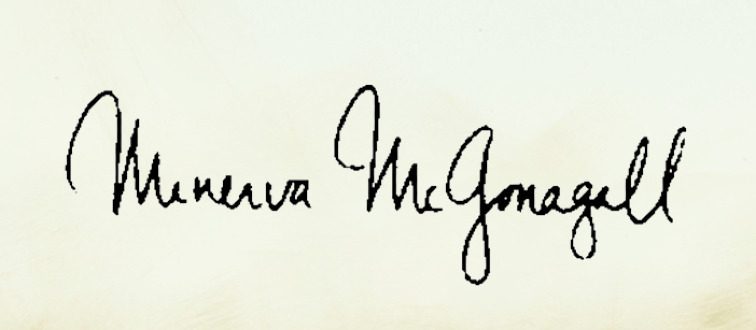 Minerva McGonagall